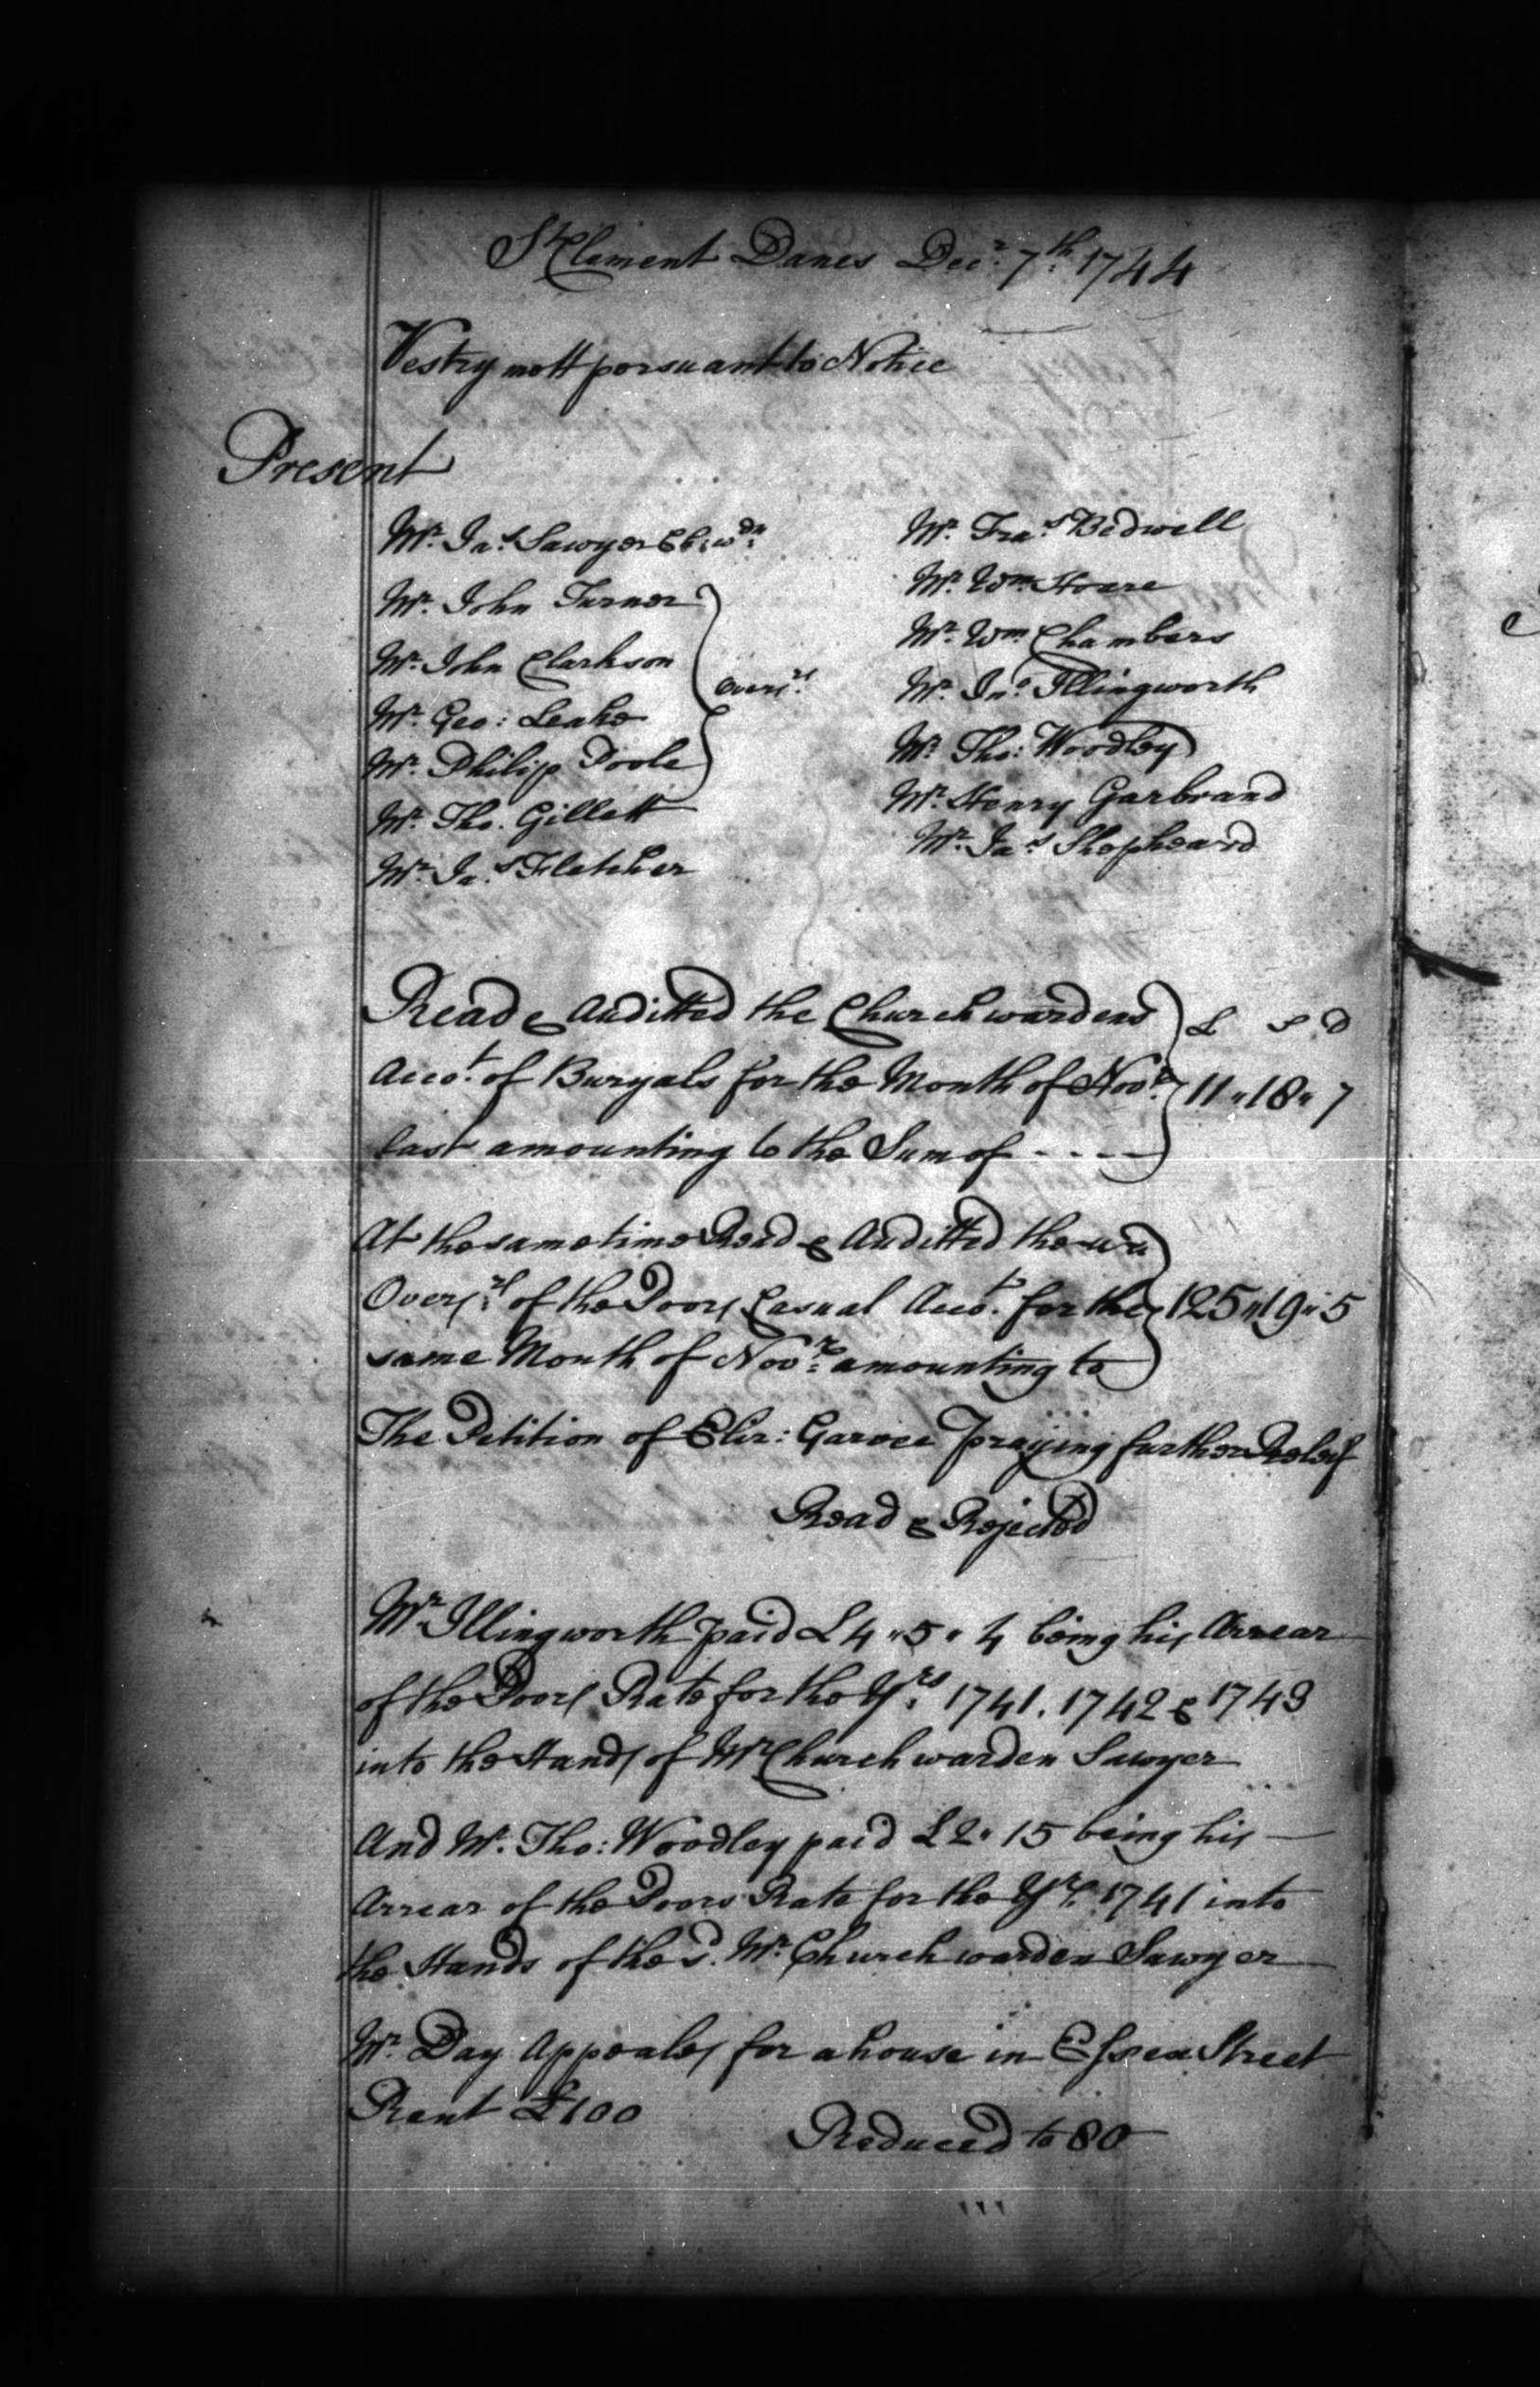 St Clement Danes Decr. 7th. 1744
Vestry mett persuant to Notice
Present
Mr. Jas. Sawyer Ch:wdn.
Mr. John Turner
Mr. John Clarkson
Mr. Geo: Leake
Mr. Philip Poole
Oversrs.
Mr. Tho. Gillett
Mr. Jas. Fletcher
Mr. Fras. Bedwell
Mr. Wm. Hoare
Mr. Wm. Chambers
Mr. Jno. Illingworth
Mr. Tho: Woodley
Mr. Henry Garbrand
Mr. Jas. Shepheard
Read & Auditted the Churchwardens £ S D
Accot. of Buryals for the Month of Novr. 11 " 18 " 7
last amounting to the Sum of - - - -
At the same time Read & Auditted the
Oversrs. of the Poors Casual Accot. for the 125 " 19 " 5
same Month of Novr. amounting to
The Petition of Eliz: Garvee Praying further Releif
Read & Rejected
Mr. Illingworth paid £4 " 5 " 4 being his Arrear
of the Poors Rate for the Yrs. 1741. 1742 & 1743
into the Hands of Mr Churchwarden Sawyer
And Mr. Tho: Woodley paid £2 " 15 being his
Arrear of the Poors Rate for the Yr. 1741 into
the Hands of the sd. Mr. Churchwarden Sawyer
Mr. Day Appeales for a house in Essex Street
Rent £100
Reduced to 80